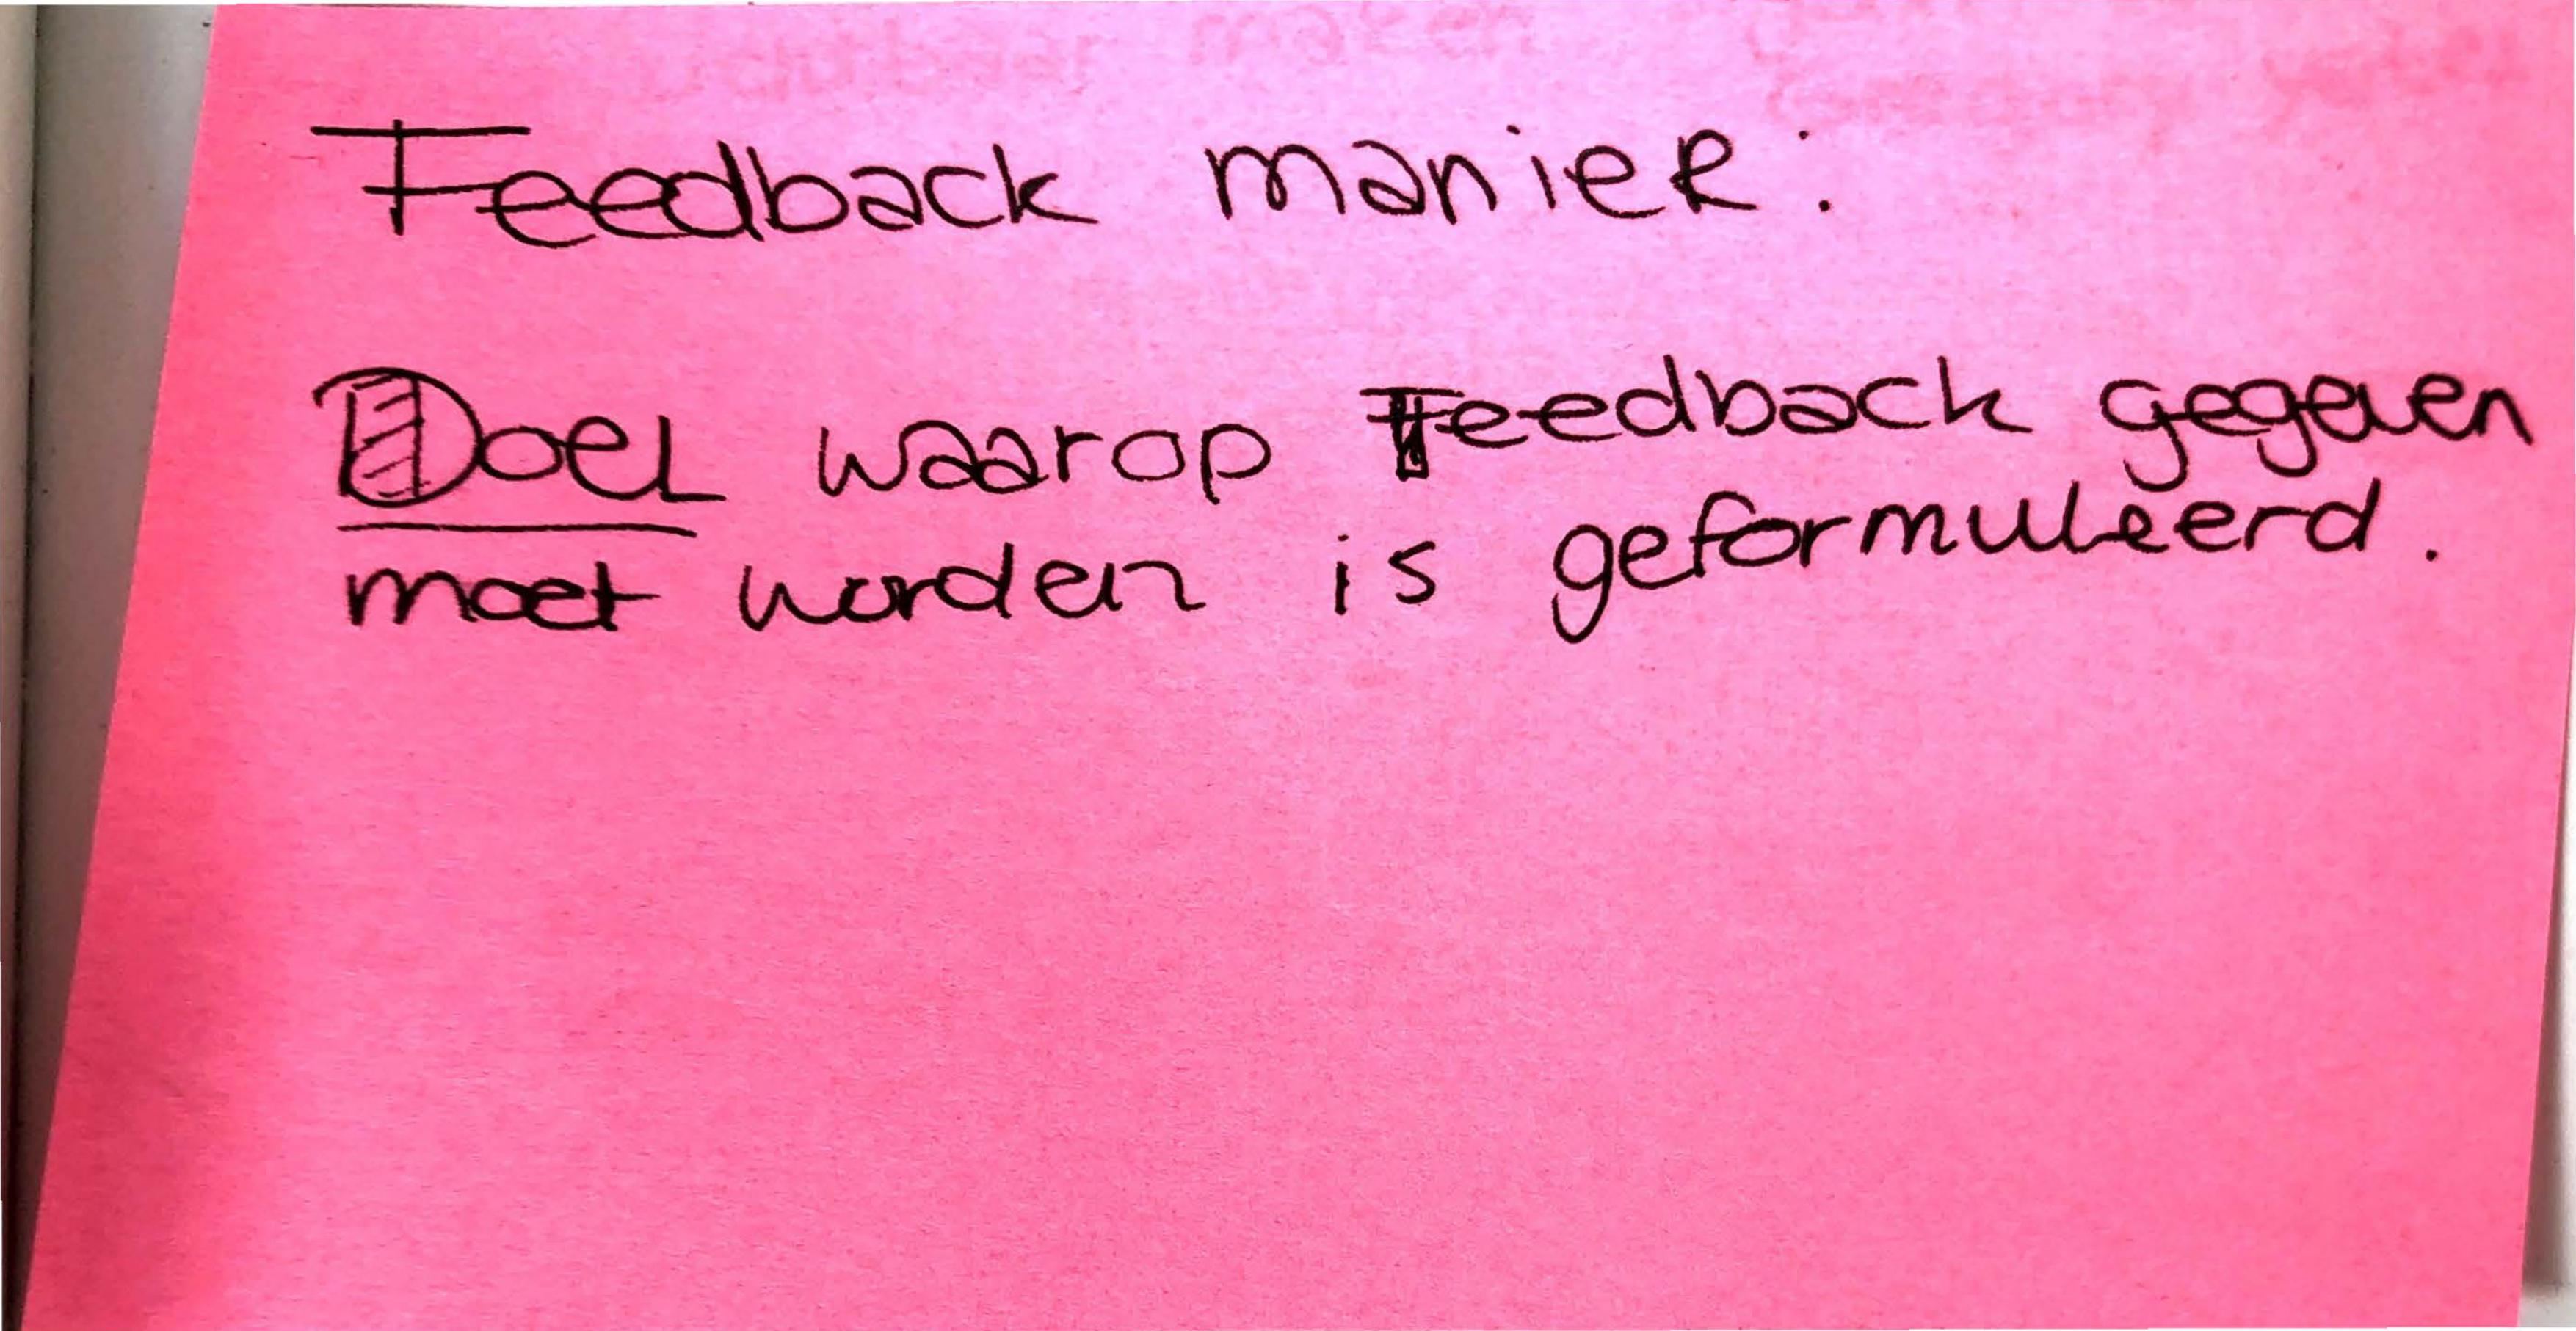 Feedback manier:
Doel waarop Feedback gegeven
moet worden is geformuleerd.